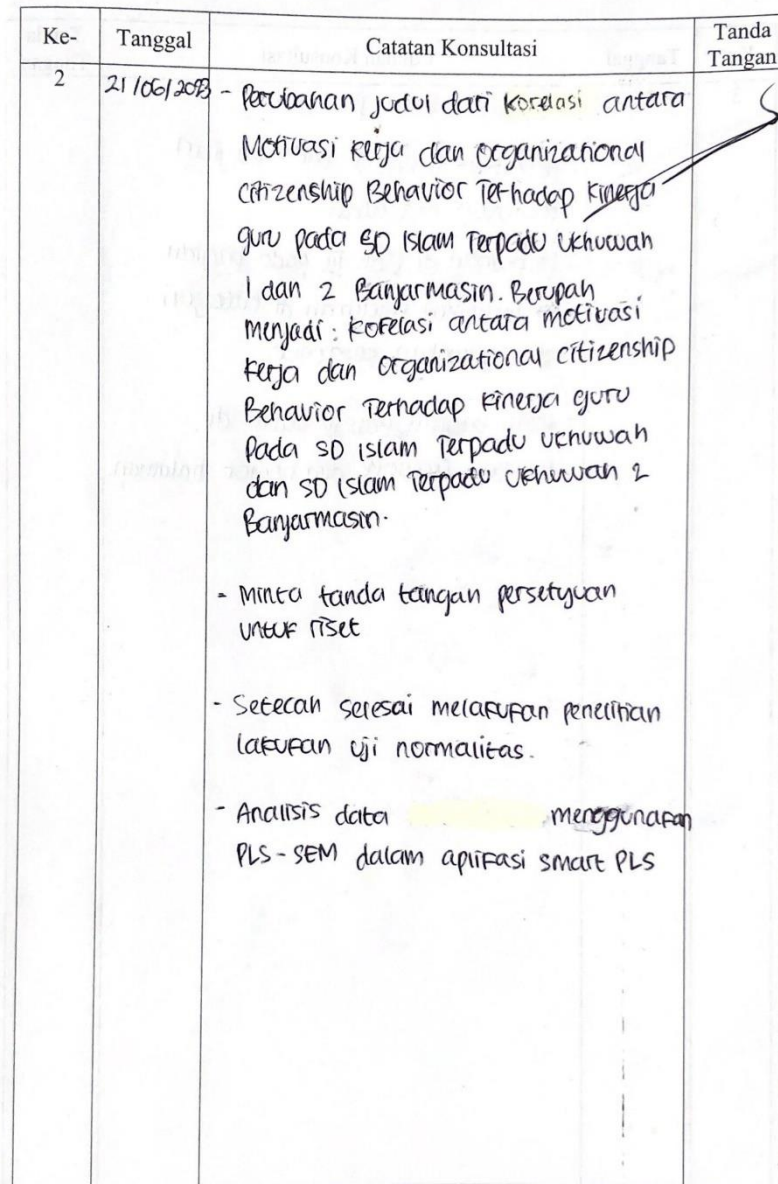 Ke-
Tanggal
Catatan Konsultasi
Tanda
Tangan
2
21/06/2023
- Perubahan judul dari korelasi antara
Motivasi kerja dan organizational
citizenship Behavior Terhadap kinerja
guru pada SD Islam Terpadu Ukhuwah
1 dan 2 Banjarmasin. Berupah
menjadi : korelasi antara motivasi
kerja dan organizational citizenship
Behavior Terhadap kinerja guru
pada SD islam Terpadu Ukhuwah
dan SD islam Terpadu Ukhuwah 2
Banjarmasin.
- Minta tanda tangan persetujuan
untuk riset
- Setelah selesai melakukan penelitian
lakukan uji normalitas.
- Analisis data menggunakan
PLS-SEM dalam aplikasi smart PLS